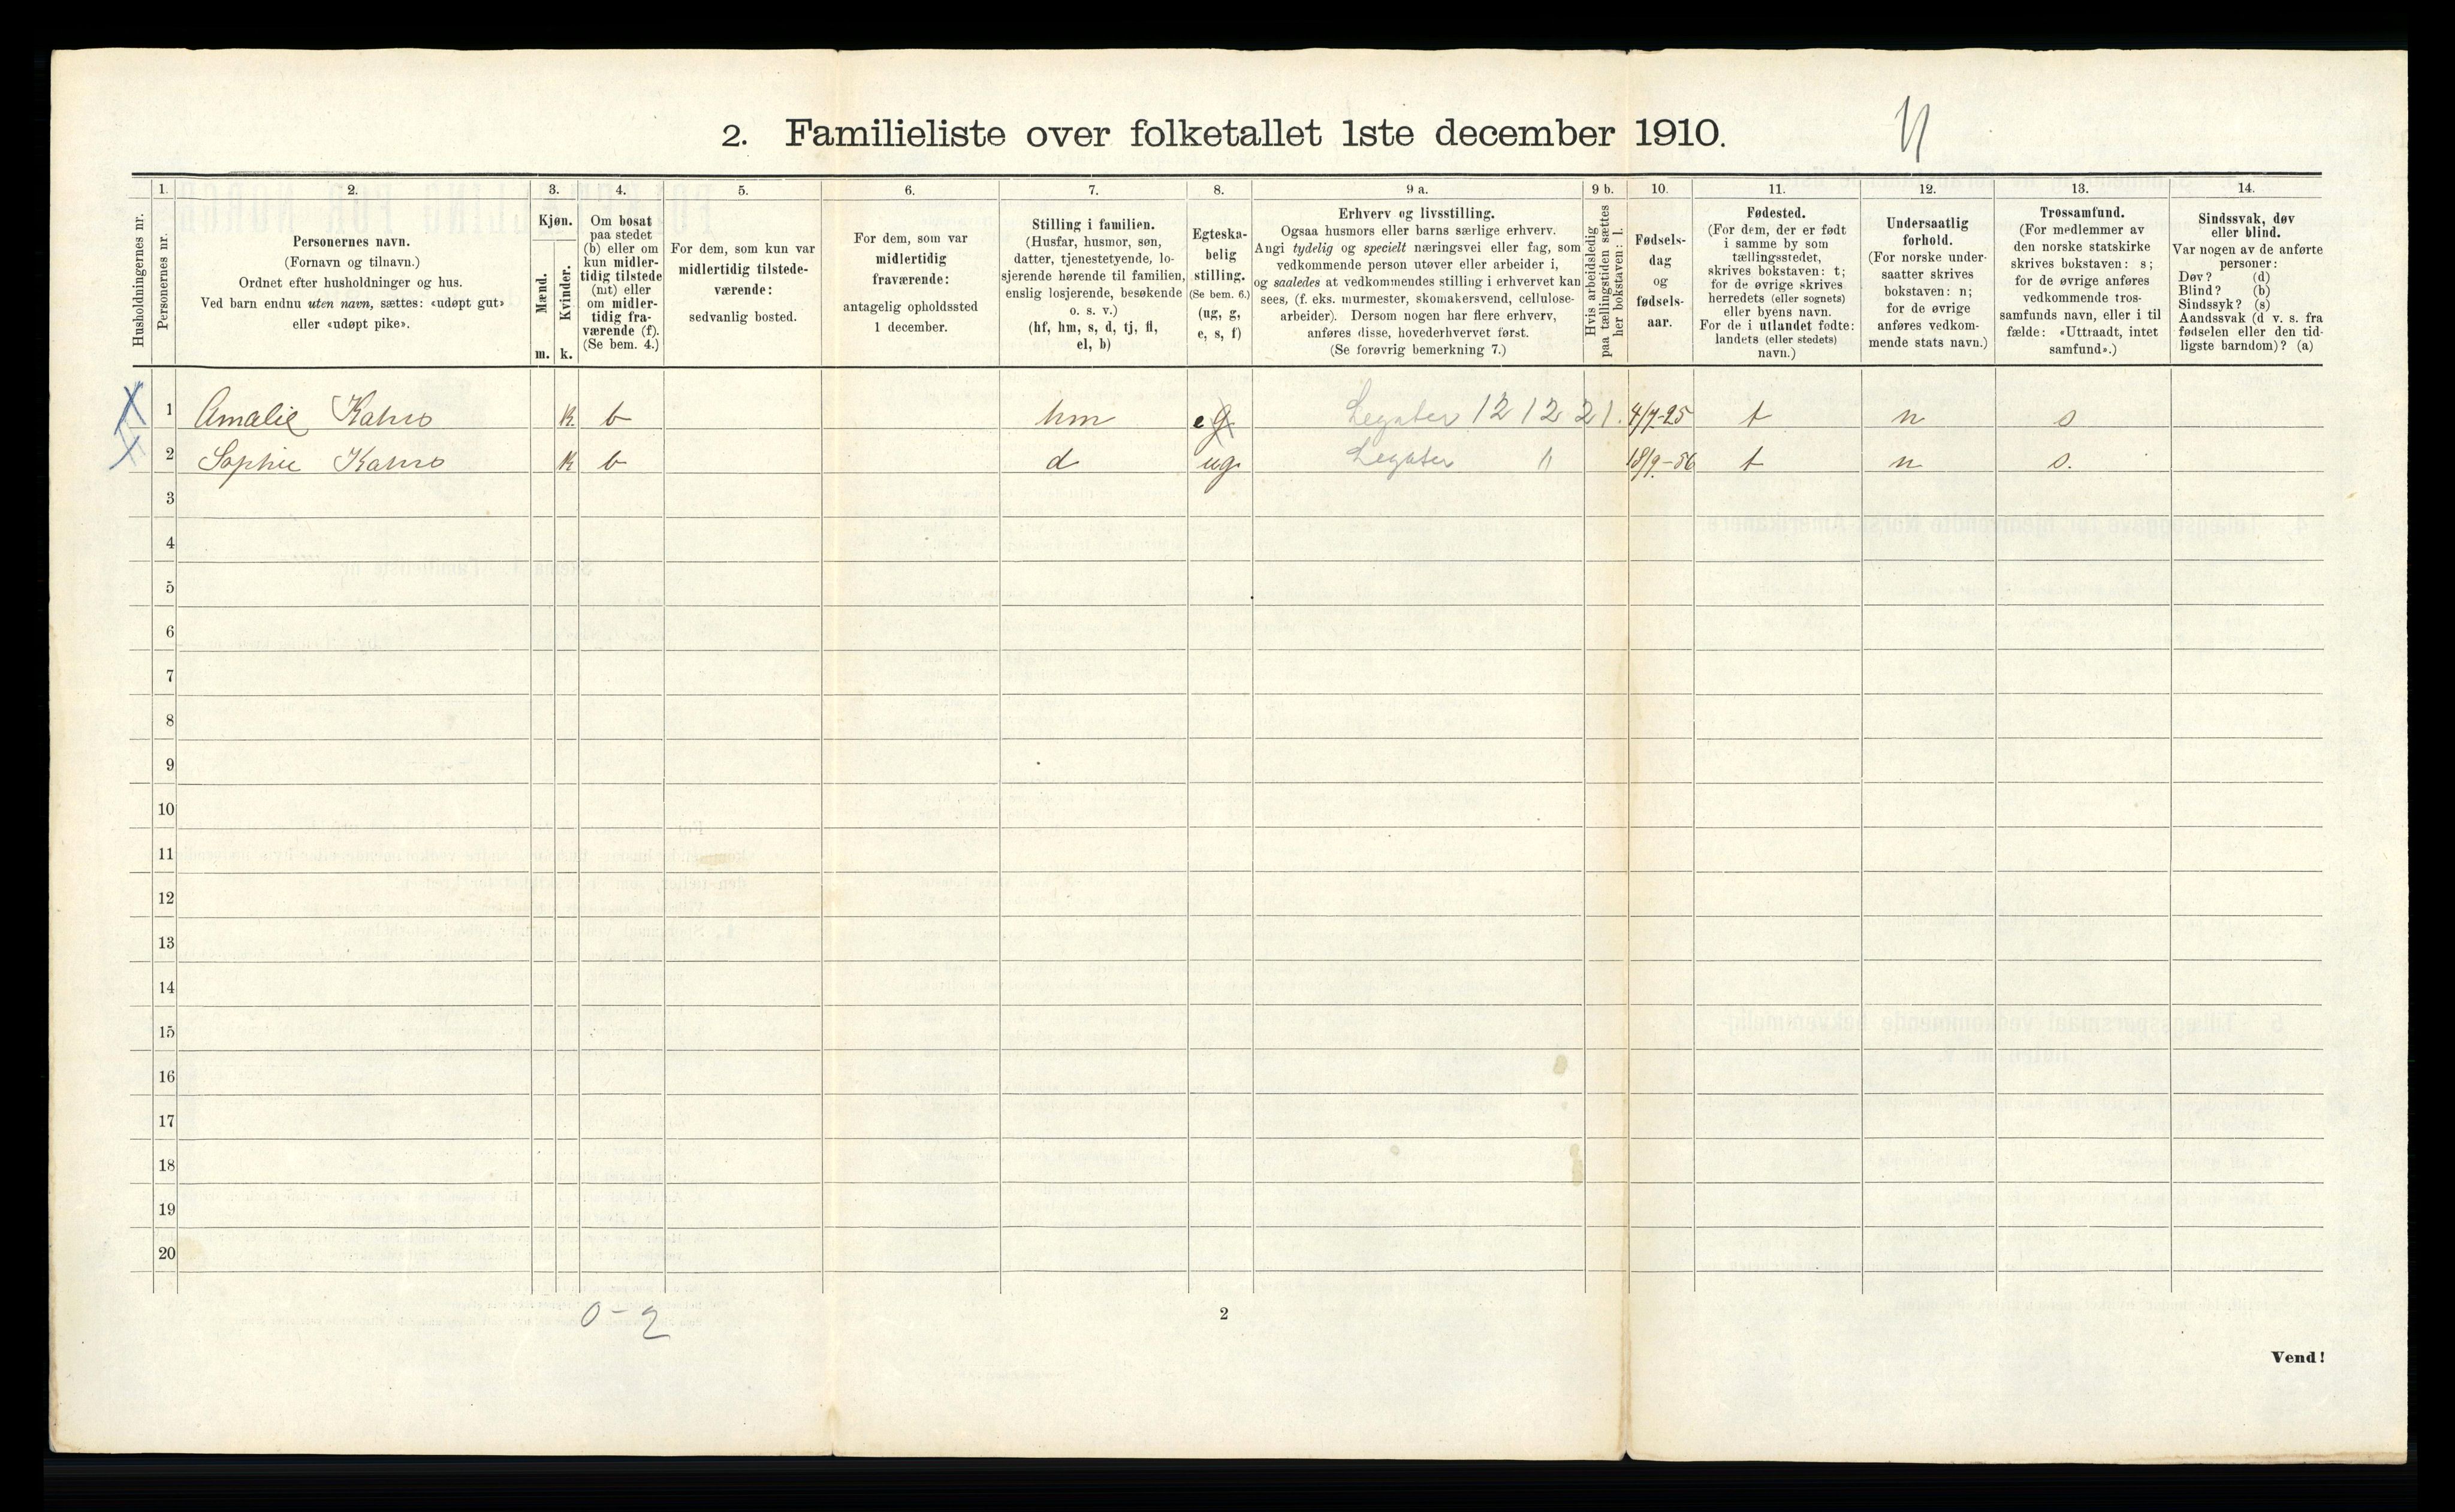 2. Familieliste over folketallet 1ste december 1910.
Husholdningernes nr.
1.
Personernes nr.
2.
Personernes navn.
(Fornavn og tilnavn.)
Ordnet efter husholdninger og hus.
Ved barn endnu uten navn, sættes: «udøpt gut»
eller «udøpt pike».
3.
Kjøn.
Mænd.
m.
Kvinder.
k.
4.
Om bosat
paa stedet
(b) eller om
kun midler-
tidig tilstede
(mt) eller
om midler-
tidig fra-
værende (f).
(Se bem. 4.)
5.
For dem, som kun var
midlertidig tilstede-
værende:
sedvanlig bosted.
6.
For dem, som var
midlertidig
fraværende:
antagelig opholdssted
1 december.
7.
Stilling i familien.
(Husfar, husmor, søn,
datter, tjenestetyende, lo-
sjerende hørende til familien,
enslig losjerende, besøkende
o. s. v.)
(hf, hm, s, d, tj, fl,
el, b)
8.
Egteska-
belig
stilling.
(Se bem. 6.)
(ug, g,
e, s, f)
9 a.
Erhverv og livsstilling.
Ogsaa husmors eller barns særlige erhverv.
Angi tydelig og specielt næringsvei eller fag, som
vedkommende person utøver eller arbeider i,
og saaledes at vedkommendes stilling i erhvervet kan
sees, (f. eks. murmester, skomakersvend, cellulose-
arbeider). Dersom nogen har flere erhverv,
anføres disse, hovederhvervet først.
(Se forøvrig bemerkning 7.)
9 b.
Hvis arbeidsledig
paa tællingstiden sættes
her bokstaven: l.
10.
Fødsels-
dag
og
fødsels-
aar.
11.
Fødested.
(For dem, der er født
i samme by som
tællingsstedet,
skrives bokstaven: t;
for de øvrige skrives
herredets (eller sognets)
eller byens navn.
For de i utlandet fødte:
landets (eller stedets)
navn.)
12.
Undersaatlig
forhold.
(For norske under-
saatter skrives
bokstaven: n;
for de øvrige
anføres vedkom-
mende stats navn.)
13.
Trossamfund.
(For medlemmer av
den norske statskirke
skrives bokstaven: s;
for de øvrige anføres
vedkommende tros-
samfunds navn, eller i til
fælde: «Uttraadt, intet
samfund».)
14.
Sindssvak, døv
eller blind.
Var nogen av de anførte
personer:
Døv? (d)
Blind? (b)
Sindssyk? (s)
Aandssvak (d v. s. fra
fødselen eller den tid-
ligste barndom)? (a)
1 Amalie Kahrs k. b hm e g Legater 12 12 21. 4/7-25 t n s
2 Sophie Kahrs k b d ug. Legater 18/9-56 t n s.
3
4
5
6
7
8
9
10
11
12
13
14
15
16
17
18
19
20
0-2
2
Vend!